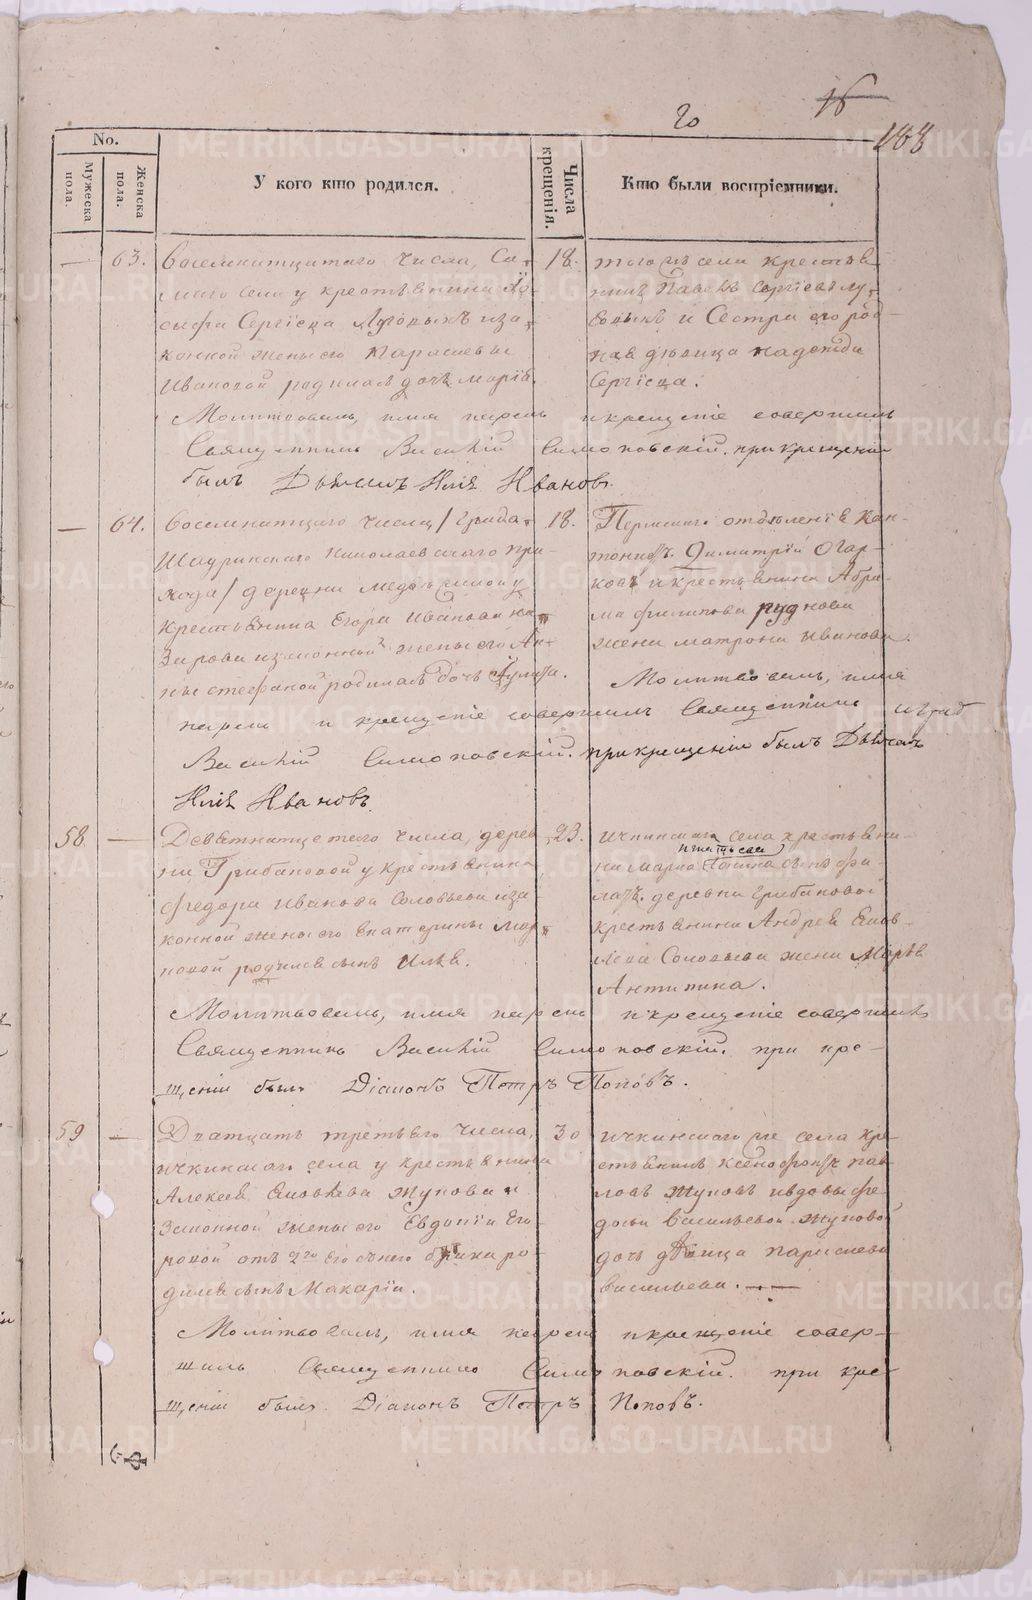 20
16
188
No.
Мужеска пола.
Женска пола.
У кого кто родился.
Числа крещенія.
Кто были воспріемники.
— 63. Восемнатцатаго числа, Са-
маго села у крестьянина Іо-
сифа Сергіева Луговыхъ и за-
конной жены его Параскевы
Ивановой родилась дочь Марія.
18. тогожъ села крестьян-
нинъ Павелъ Сергіевъ Лу-
говыхъ и Сестра его род-
ная дѣвица Надежда
Сергіева.
Молитвовалъ, имя нарекъ и крещеніе совершилъ
Священникъ Василій Симоновскій. при крещеніи
былъ Дьячекъ Илія Ивановъ.
— 64. Восемнатцаго числа / Града
Шадринскаго Николаевскаго при-
хода / деревни у
крестьянина Егора Иванова На-
зарова и законной жены его Ан-
ны Стефановой родилась дочь
18. Пермскаго отдѣленія Кан-
тонистъ Димитрій Огар-
ковъ и крестьянина Абра-
ма Филипова Руднова
жена Матрона Иванова.
Молитвовалъ, имя
нарекъ и крещеніе совершилъ Священникъ
Василій Симоновскій. при крещеніи былъ Дьячекъ
Илія Ивановъ.
58. — Девятнатцетаго числа, дерев-
ни Грибановой у крестьянина
Федора Иванова Соловьева и за-
конной жены его Екатерины Мар-
ковой родился сынъ Илья.
23. Ичкинскаго села крестьяни-
на Марка сынъ Фи-
латъ. деревни Грибановой
крестьянина Андрея Яков-
лева Соловьева жена Марья
Антипина.
Молитвовалъ, имя нарекъ и крещеніе совершилъ
Священникъ Василій Симоновскій. при кре-
щеніи былъ Діаконъ Петръ Поповъ.
59 — Дватцать третьяго числа,
Ичкинскаго села у крестьянина
Алексея Яковлева Жукова и
законной жены его Евдокіи Его-
ровой отъ 2го его съ нею брака ро-
дился сынъ Макарій.
30 Ичкинскаго же села кре-
стьянинъ Ксенофонтъ Пав-
ловъ Жуковъ и вдовы Фе-
досьи Васильевой Жуковой
дочь дѣвица Параскева
Васильева.
Молитвовалъ, имя нарекъ и крещеніе совер-
шилъ Священникъ Симоновскій. при кре-
щеніи былъ Діаконъ Петръ Поповъ.
METRIKI.GASO-URAL.RU